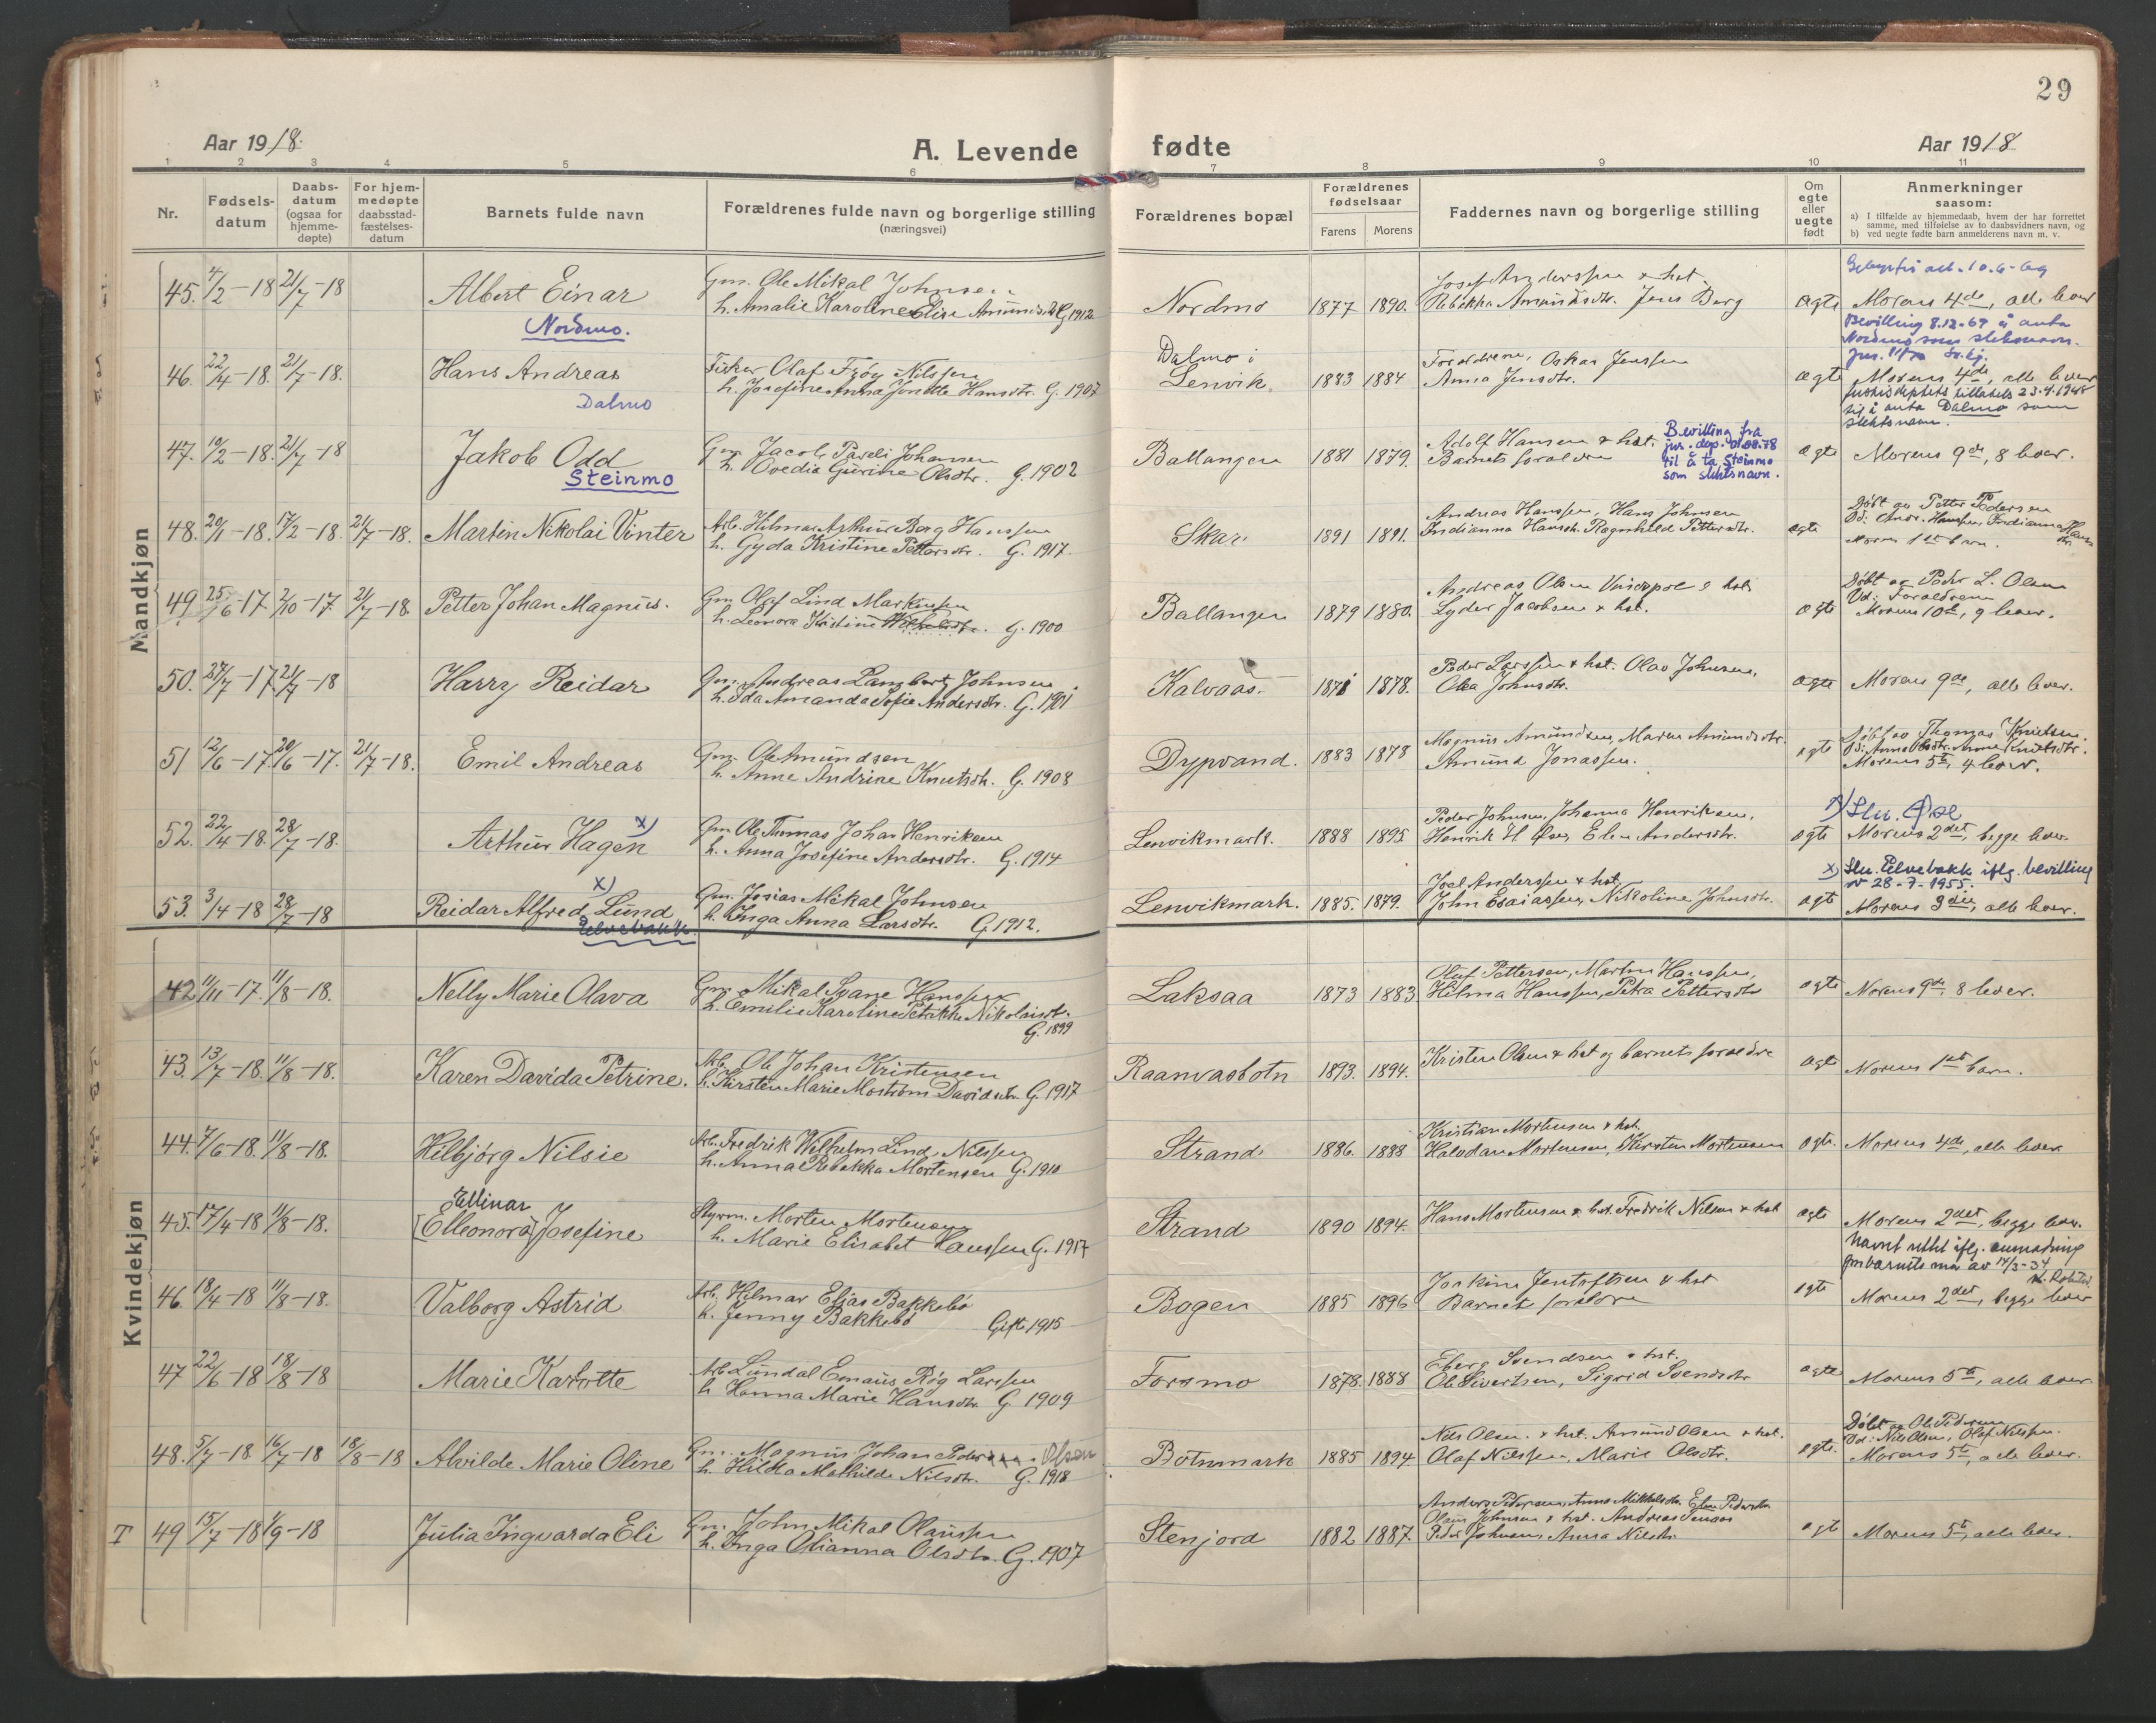 29
Aar 1918.
A. Levende fødte
Aar 1918
1 2 3 4 5 6 7 8 9 10 11
Nr.
Fødsels-
datum
Daabs-
datum
(ogsaa for
hjemme-
døpte)
For hjem-
medøpte
daabsstad-
fæstelses-
datum
Barnets fulde navn
Forældrenes fulde navn og borgerlige stilling
(næringsvei)
Forældrenes bopæl
Forældrenes
fødselsaar
Farens Morens
Faddernes navn og borgerlige stilling
Om
egte
eller
uegte
født
Anmerkninger
saasom:
a) I tilfælde av hjemmedaab, hvem der har forrettet
samme, med tilføielse av to daabsvidners navn, og
b) ved uegte fødte barn anmelderens navn m. v.
Mandkjøn
45. 4/2-18 21/7-18
Albert Einar
Nordmo.
Gm. Ole Mikal Johnsen
h. Amalie Karoline Elise G. 1912
Nordmo 1877 1890.
Josef Anderssen & hst.
Rebekka Amundsdtr. Jens Berg
ægte
10.6-69
Morens 4de, alle lever
Bevilling 8.12.69 å anta
Nordmo som slektsnavn.
46. 22/4-18. 21/7-18.
Hans Andreas
Dalmo
Fisker Olaf Frøy Nilssen
h. Josefine Anna Jonette Hansdtr. G. 1907
Dalmo i
Lenvik. 1883 1884
Forældrene, Oskar Jenssen
Anna Jensdtr.
ægte
Morens 4de, alle lever
tillatelse 23.4.1948
til å anta Dalmo som
slektsnavn.
47. 10/2-18. 21/7-18
Jakob Odd
Steinmo
Gm. Jacob Pareli Johansen
h. Ovedia Gurine Olsdtr. G. 1902
Ballangen 1881 1879.
Adolf Hansen & hst.
Barnets forældre
Bevilling fra
jus. dep.
til å ta Steinmo
som slektsnavn.
ægte
Morens 9de, 8 lever.
48. 20/1-18. 17/2-18. 21/7-18.
Martin Nikolai Vinter
Arb. Hilmar Arthur Borg Hanssen
h. Gyda Kristine Pettersdtr. G. 1917.
Skar 1891 1891.
Andreas Hanssen, Hans Johnsen
Indianna Hansdt. Ragnhild Pettersdtr.
ægte
Døbt av Petter Pedersen
Morens 1ste barn.
49. 25/6-17 2/10-17 21/7-18.
Petter Johan Magnus.
Gm Olaf Lind Martinsen
h. Leonora Kristine G. 1900
Ballangen 1879 1880.
Andreas Olsen & hst
Lyder Jacobsen & hst.
ægte
Døbt av Peder L. Olsen
Vd: Forældrene
Morens 10de, 9 lever.
50. 27/7-17 21/7-18
Harry Reidar
Gm. Andreas Langberg Johnsen
h. Ida Amanda Sofie Andersdtr. G. 1901
Kalvaas. 1871 1878.
Peder Larssen & hst. Olav Johnsen,
Olea Johnsdtr.
ægte
Morens 9de, alle lever.
51 12/6-17. 20/6-17. 21/7-18.
Emil Andreas
Gm. Ole Amundsen
h. Anne Andrine Knutsdtr. G. 1908
Dypvand. 1883 1878
Magnus Amundsen, Maren Amundsdtr.
Amund Jonassen.
ægte
Døbt av Thomas Knutsen.
Morens 5te, 4 lever.
52. 22/4-18. 28/7-18.
Arthur Hagen x)
Gm Ole Tomas Johan Henriksen
h. Anna Josefine Andersdtr. G. 1914
Lenvikmark. 1888 1895
Peder Johnsen, Johanna Henriksen,
Henrik H. Elen Andersdtr.
ægte
Morens 2det, begge lever.
53. 3/4-18 28/7-18
x)
Reidar Alfred Lund
Elvebakk.
Gm. Josias Mikal Johnsen
h. Inga Anna Larsdtr. G. 1912.
Lenvikmark. 1885. 1879.
Joel Anderssen & hst.
John Esaiassen, Nikoline Johnsdtr.
ægte
x) Sln. Elvebakk iflg. bevilling
av 28-7-1955.
Morens 3die, alle lever.
Kvindekjøn
42 11/11-17. 11/8-18.
Nelly Marie Olava
Gm. Mikal Svane Hanssen
h. Emilie Karoline Petrikke Nikolaisdt.
G. 1899
Laksaa 1873 1883
Oluf Pettersen, Martin Hanssen,
Hilma Hanssen, Petra Pettersdtr
ægte
Morens 9de, 8 lever.
43. 13/7-18. 11/8-18.
Karen Davida Petrine.
Arb. Ole Johan Kristensen
h. Kirsten Marie Moström Davidsdtr. G. 1917
Raanvasbotn 1893. 1894.
Kristen Olsen & hst og barnets forældre
ægte
Morens 1ste barn.
44. 7/6-18. 11/8-18.
Hilbjørg Nilsie
Arb. Fredrik Wilhelm Lind Nilssen
h. Anna Rebekka Mortensen G. 1910
Strand 1886. 1888
Kristian Mortensen & hst.
Halvdan Mortensen, Kirsten Mortensen
ægte.
Morens 4de, alle lever
45. 17/4-18 11/8-18.
Ellinor
[Elleonora] Josefine
Styrm. Morten Mortensen
h. Marie Elisabet Hanssen G. 1917
Strand 1890 1894.
Hans Mortensen & hst. Fredrik Nilsen & hst
ægte
Morens 2det, begge lever.
Navnet rettet iflg. anmodning
14/3-34
46. 18/4-18 11/8-18.
Valborg Astrid
Arb. Hilmar Elias Bakkebø
h. Jenny Bakkebø Gift 1915
Bogen 1885 1896
Joakim Jentoftsen & hst
Barnets forældre
ægte
Morens 2det, begge lever
47 22/6-18 18/8-18
Marie Karlotte
Arb Lundal Emaius Røg Larssen
h Hanna Marie Hansdtr. G. 1909
Forsmo 1878. 1888
Eberg Svendsen & hst.
Ole Sivertsen, Sigrid Svendsdtr
ægte
Morens 5te, alle lever
48. 5/7-18 16/7-18 18/8-18
Alvilde Marie Oline
Gm. Magnus Johan Pedersen Olsen
h. Hilda Mathilde Nilsdtr. G. 1918
Botnmark 1885 1894
Nils Olsen & hst. Amund Olsen & hst.
Olaf Nilssen, Marie Olsdtr.
ægte.
Døbt av Ole Pedersen
Vd: Nils Olsen, Olaf Nilssen.
Morens 5te, alle lever.
T 49 15/7-18 1/9-18
Julia Ingvarda Eli
Gm. John Mikal Olaussen
h. Inga Olianna Olsdtr. G. 1907
Stenjord 1882 1887.
Anders Pedersen, Anna Mikkelsdtr. Elen Pedersdtr
Olaus Johnsen & hst. Andreas
Peder Johnsen, Anna Nilsdtr.
ægt
Morens 5te, alle lever.